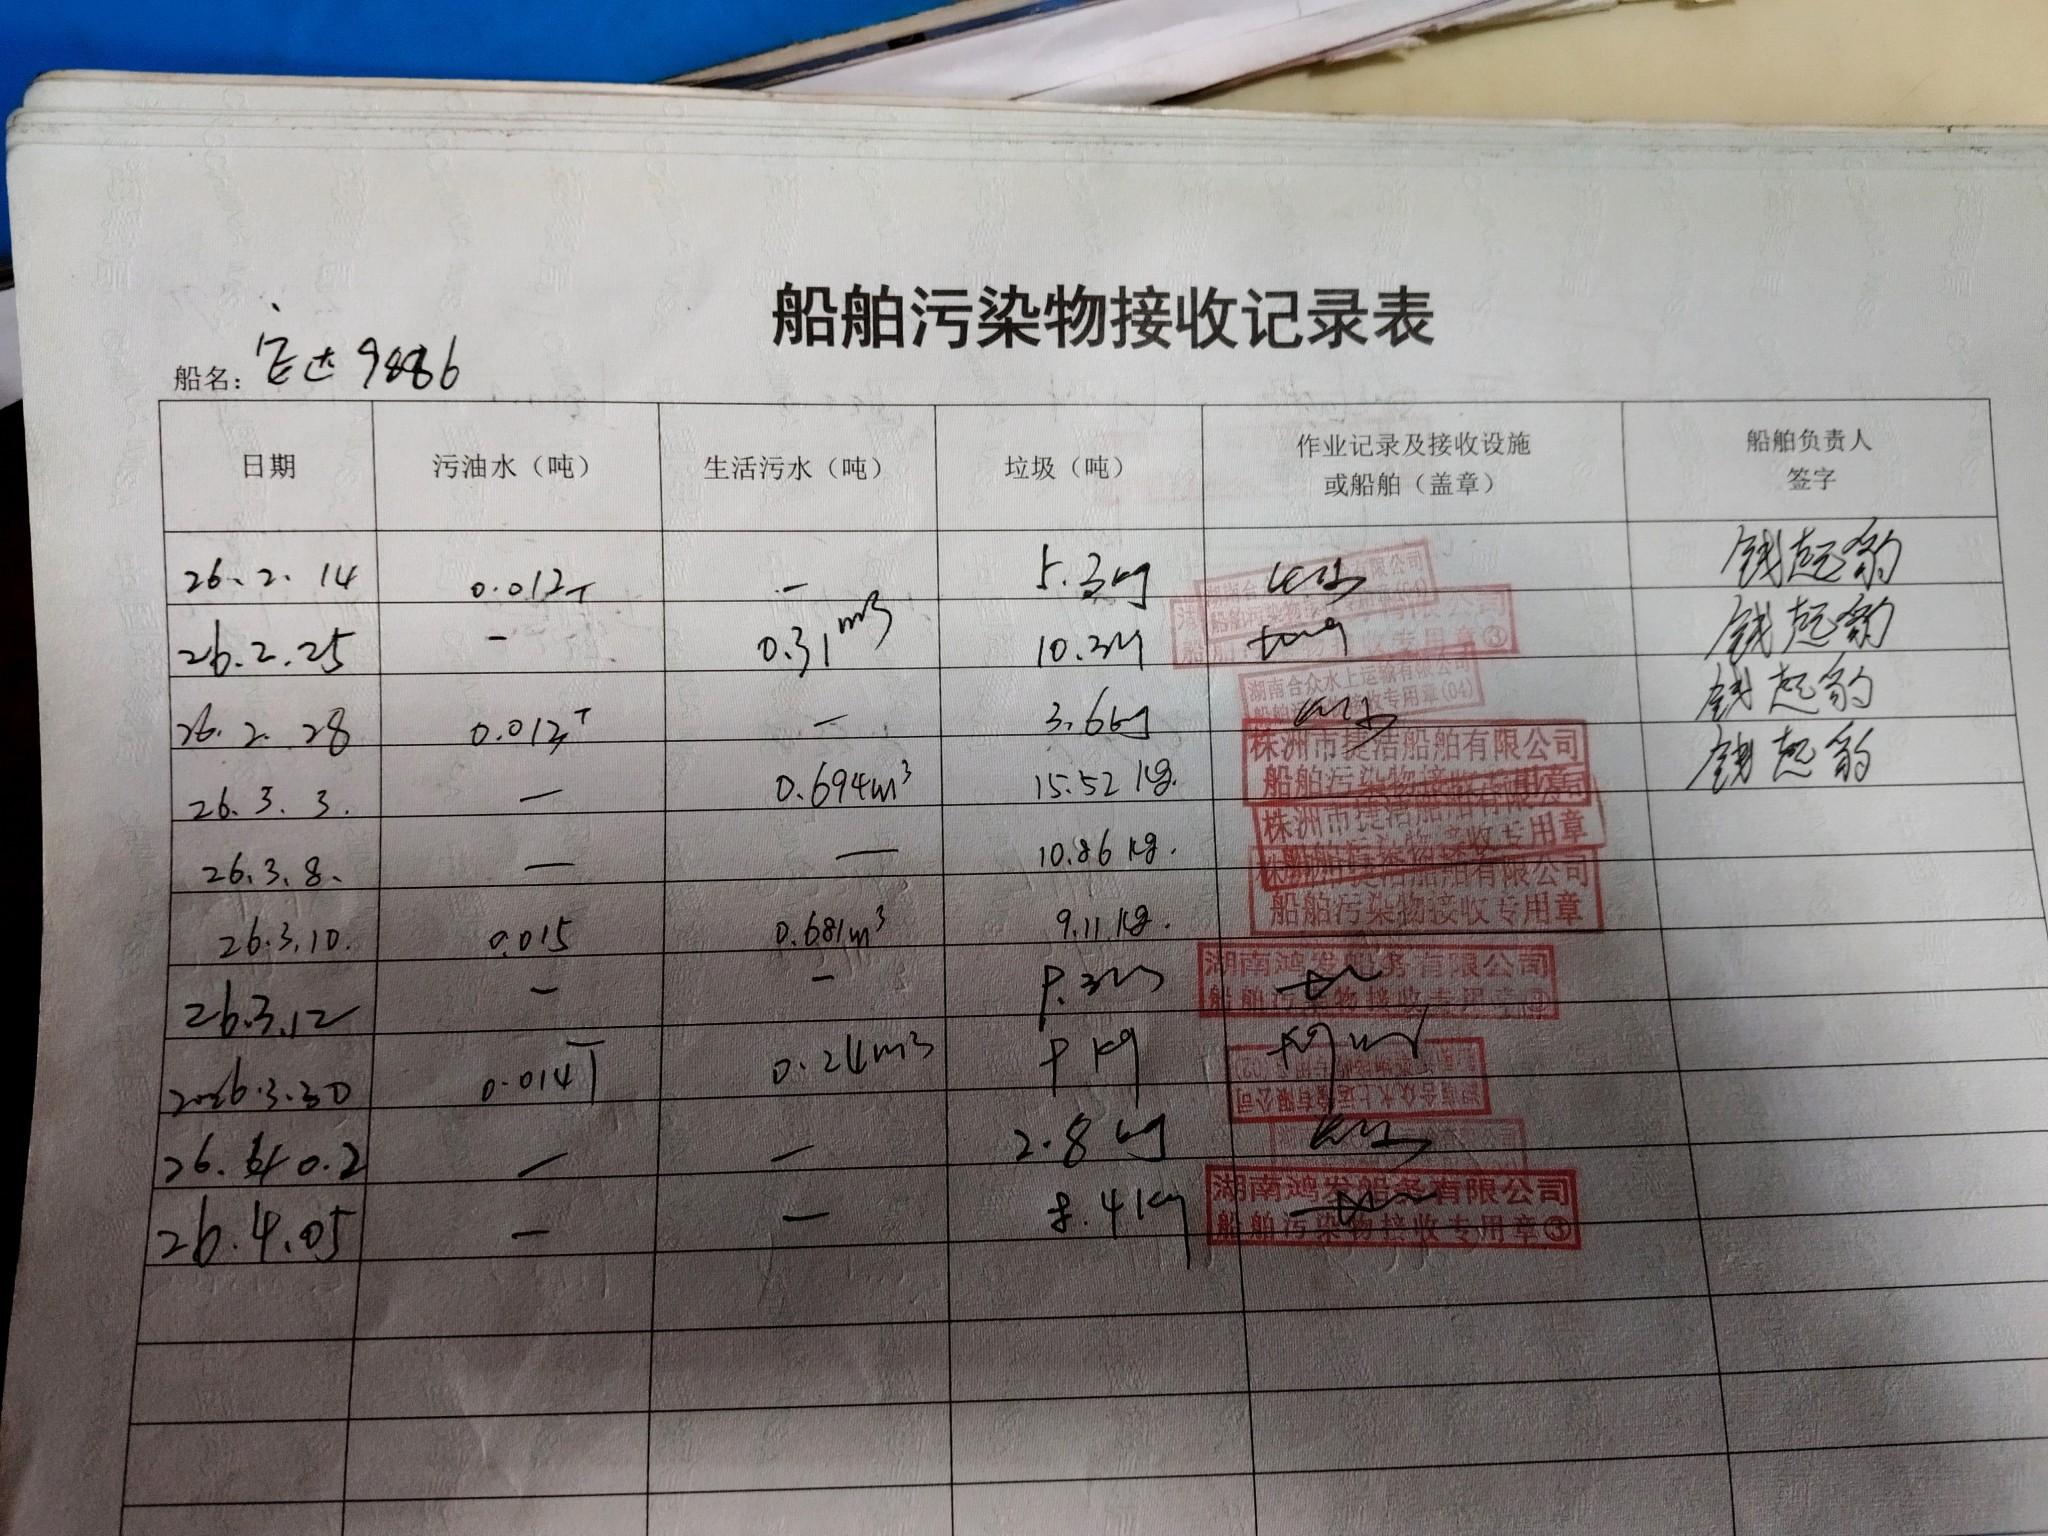 船舶污染物接收记录表
船名: 宏达9886
日期 污油水（吨） 生活污水（吨） 垃圾（吨） 作业记录及接收设施或船舶（盖章） 船舶负责人签字
26.2.14 0.012T — 5.3kg 钱起豹
26.2.25 — 0.31m³ 10.3 船舶污染物接收专用章③ 钱起豹
26.2.28 0.012T — 3.6kg 湖南合众水上运输有限公司 船舶污染物接收专用章(04) 钱起豹
26.3.3. — 0.694m³ 15.52kg. 株洲市捷洁船舶有限公司 船舶污染物接收专用章 钱起豹
26.3.8. — — 10.86kg. 株洲市捷洁船舶有限公司 船舶污染物接收专用章
26.3.10. 0.015 0.681m³ 9.11kg. 株洲市捷洁船舶有限公司 船舶污染物接收专用章
26.3.12 — — 湖南鸿发船务有限公司 船舶污染物接收专用章③
2026.3.30 0.014T 0.24m³ kg 湖南合众水上运输有限公司
— — 2.8kg
26.4.05 — — 8.4kg 湖南鸿发船务有限公司 船舶污染物接收专用章③